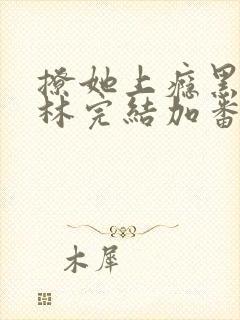 撩她上癮黑
林完結加番
木犀